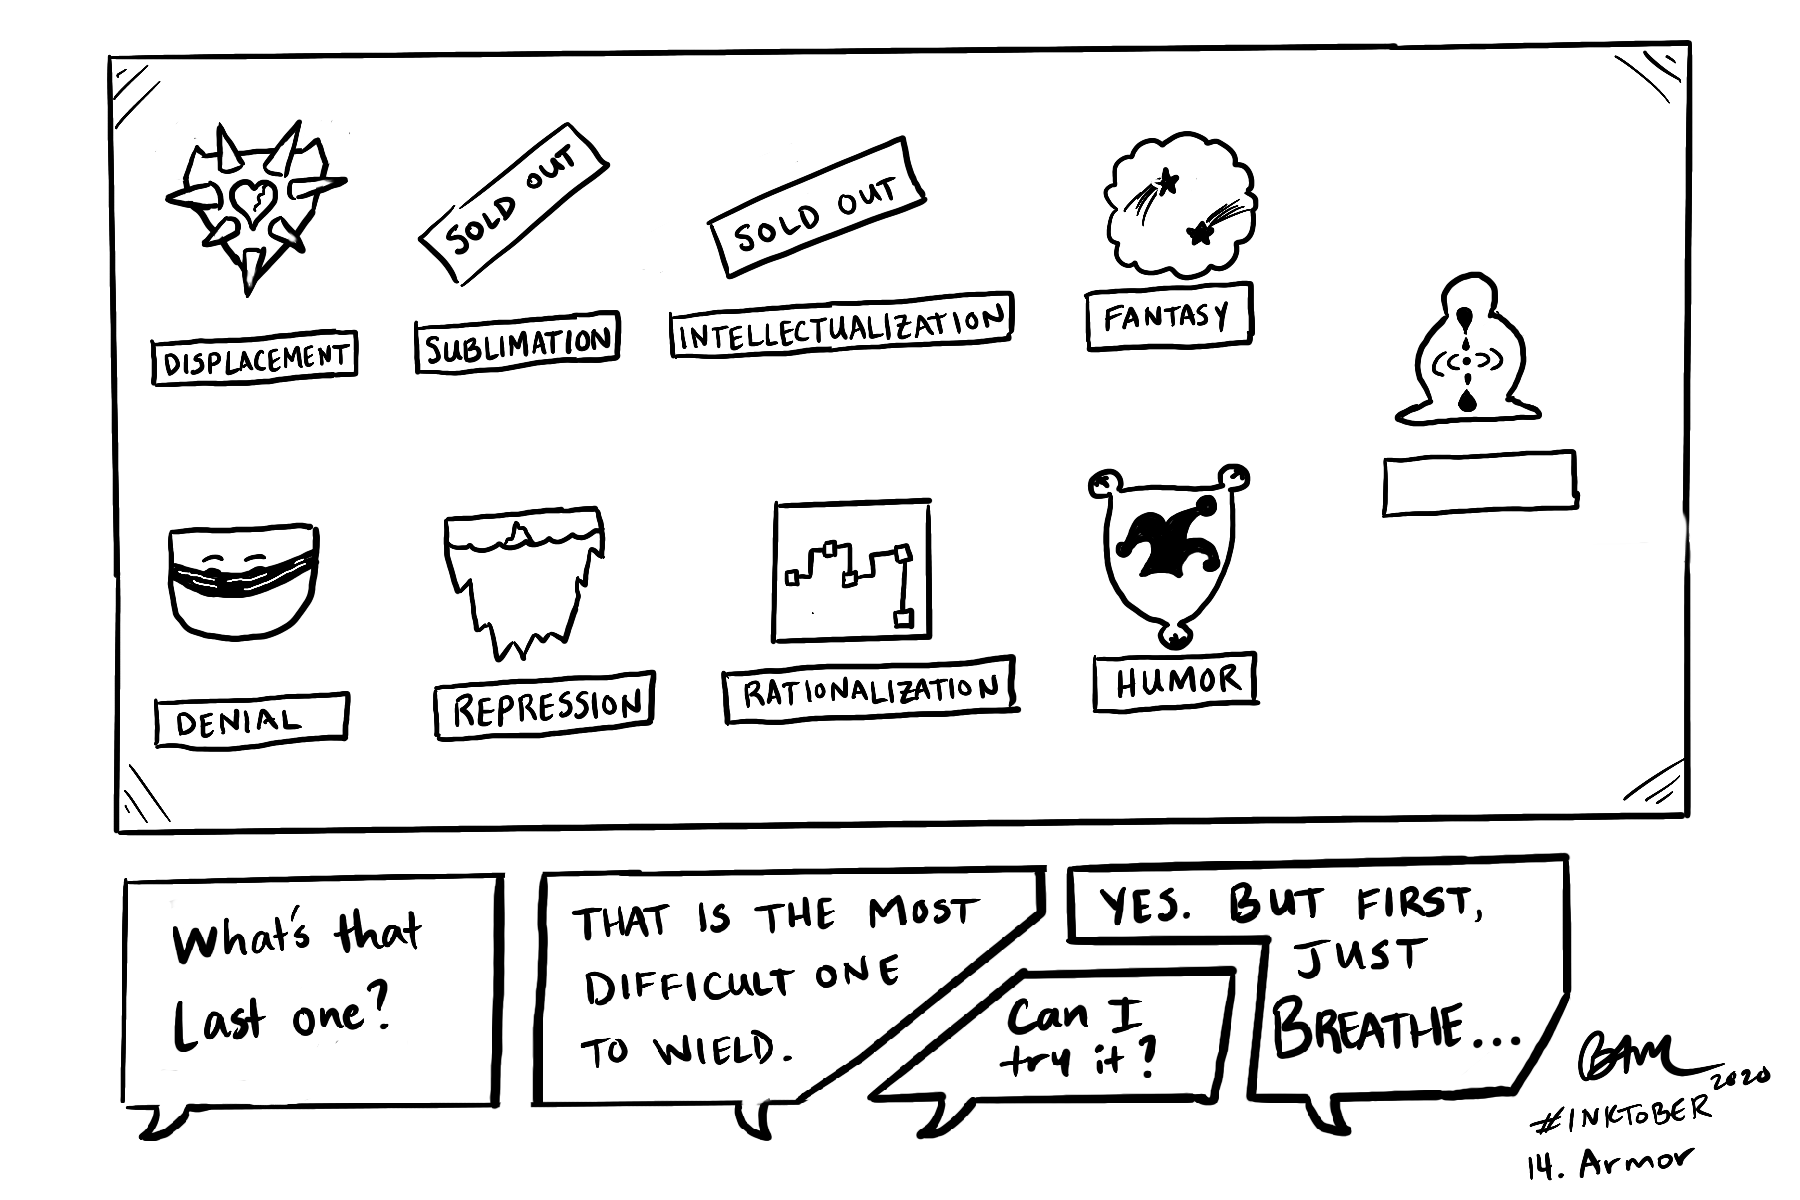 SOLD OUT
SOLD OUT
DISPLACEMENT
SUBLIMATION
INTELLECTUALIZATION
FANTASY
DENIAL
REPRESSION
RATIONALIZATION
HUMOR
What's that
Last one?
THAT IS THE MOST
DIFFICULT ONE
TO WIELD.
Can I
try it?
YES. BUT FIRST,
JUST
BREATHE...
BAM
2020
#INKTOBER
14. Armor